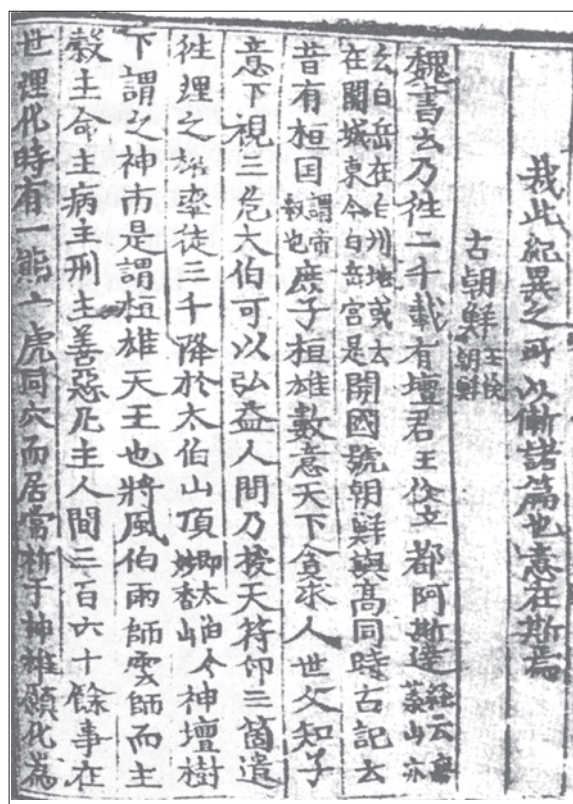 哉此紀異之所以慚諸篇也意在斯焉
古朝鮮王儉朝鮮
魏書云乃徃二千載有壇君王儉立都阿斯達經云無葉山亦
云白岳在白州地或云在開城東今白岳宮是開國號朝鮮與高同時古記云
昔有桓囯謂帝釋也庶子桓雄數意天下貪求人世父知子
意下視三危太伯可以弘益人間乃授天符印三箇遣
徃理之雄率徒三千降於太伯山頂即太伯今妙香山神壇樹
下謂之神市是謂桓雄天王也將風伯雨師雲師而主
糓主命主病主刑主善惡凡主人間三百六十餘事在
世理化時有一熊一虎同穴而居常祈于神雄願化為